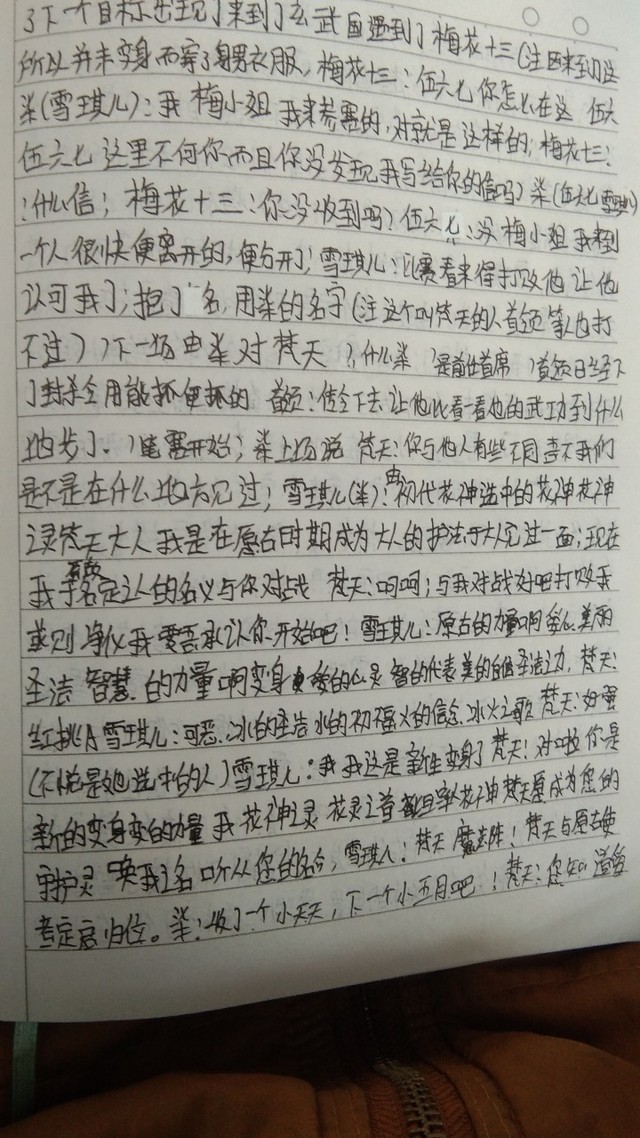 了下一个目标出现了来到了玄武国遇到了梅花十三(注因来到
所以并未变身而穿了身男衣服,梅花十三:伍六七你怎么在这 伍六
柒(雪琪儿):我 梅小姐 我来参赛的,对就是这样的;梅花十三:
伍六七 这里不问你而且你没发现我写给你的信吗?柒(伍六七雪琪儿)
:什么信; 梅花十三:你没收到吗?伍六七:没 梅小姐 我来到
一个人很快便离开的,便分开了;雪琪儿:比赛看来得打败他 让他
认可我了;抱了 名,用柒的名字(注这个叫梵天的人首领等人也打
不过))下一场由柒对梵天 ?什么柒 是前任首席 首领已经下
了封杀令用能抓便抓的 首领:传令下去让他比看一看他的武功到什么
地步了.)笔赛开始;柒上场说 梵天:你与他人有些不同 我们
是不是在什么地方见过;雪琪儿(柒):由初代花神选中的花神花神
录梵天大人我是在原古时期成为大人的护法于大人见过一面;现在
我于 名定主人的名义与你对战 梵天:呵呵;与我对战好吧打败我
或则净化我 要吾承认你.开始吧!雪琪儿:原古的力量啊爱心美丽
圣洁 智慧.的力量啊变身 爱的心灵 智的代表美的 圣洁之力,梵天:
红挑A 雪琪儿:可恶.冰的圣洁水的初福火的信念,冰火之歌 梵天:如
(不愧是她选中的人)雪琪儿:我我这是新生变身了 梵天:对啦你是
新的变身变白的力量 我 花神之灵 花灵之首 花神 梵天愿成为您的
守护灵 唤我之名 听从您的命令,雪琪儿:梵天 魔法阵!梵天与原古使
者定启归位。柒:收了一个小天天,下一个小五月吧!梵天:您知道